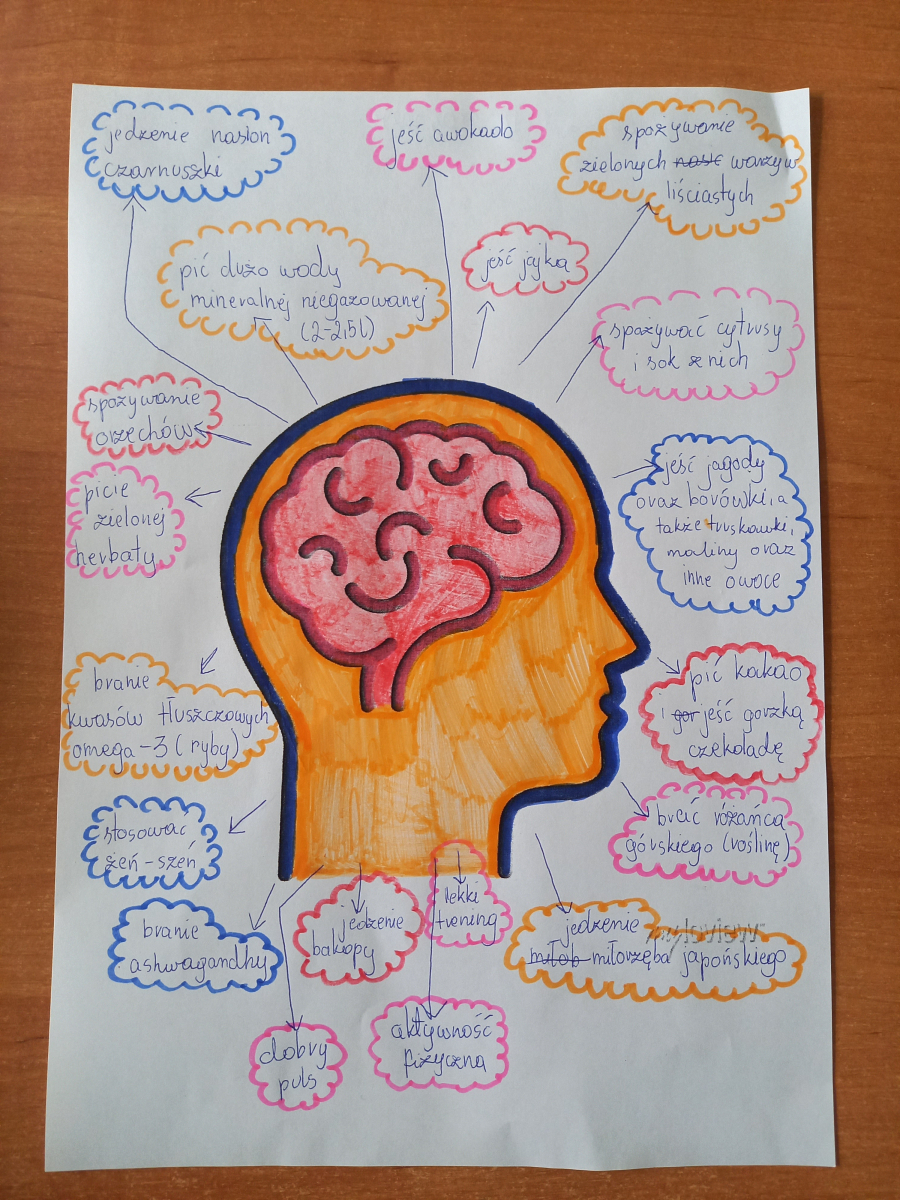 jedzenie nasion
czarnuszki
jeść awokado
spożywanie
zielonych nasc warzyw
liściastych
pić dużo wody
mineralnej niegazowanej
(2-2,5l)
jeść jajka
spożywać cytrusy
i sok z nich
spożywanie
orzechów
jeść jagody
oraz borówki, a
także truskawki,
maliny oraz
inne owoce
picie
zielonej
herbaty
branie
kwasów tłuszczowych
omega-3 (ryby)
pić kakao
i gor jeść gorzką
czekoladę
stosować
żeń-szeń
brać różańca
górskiego (roślinę)
branie
ashwagandhy
jedzenie
bakopy
lekki
trening
jedzenie
młob miłorzęba japońskiego
dobry
puls
aktywność
fizyczna